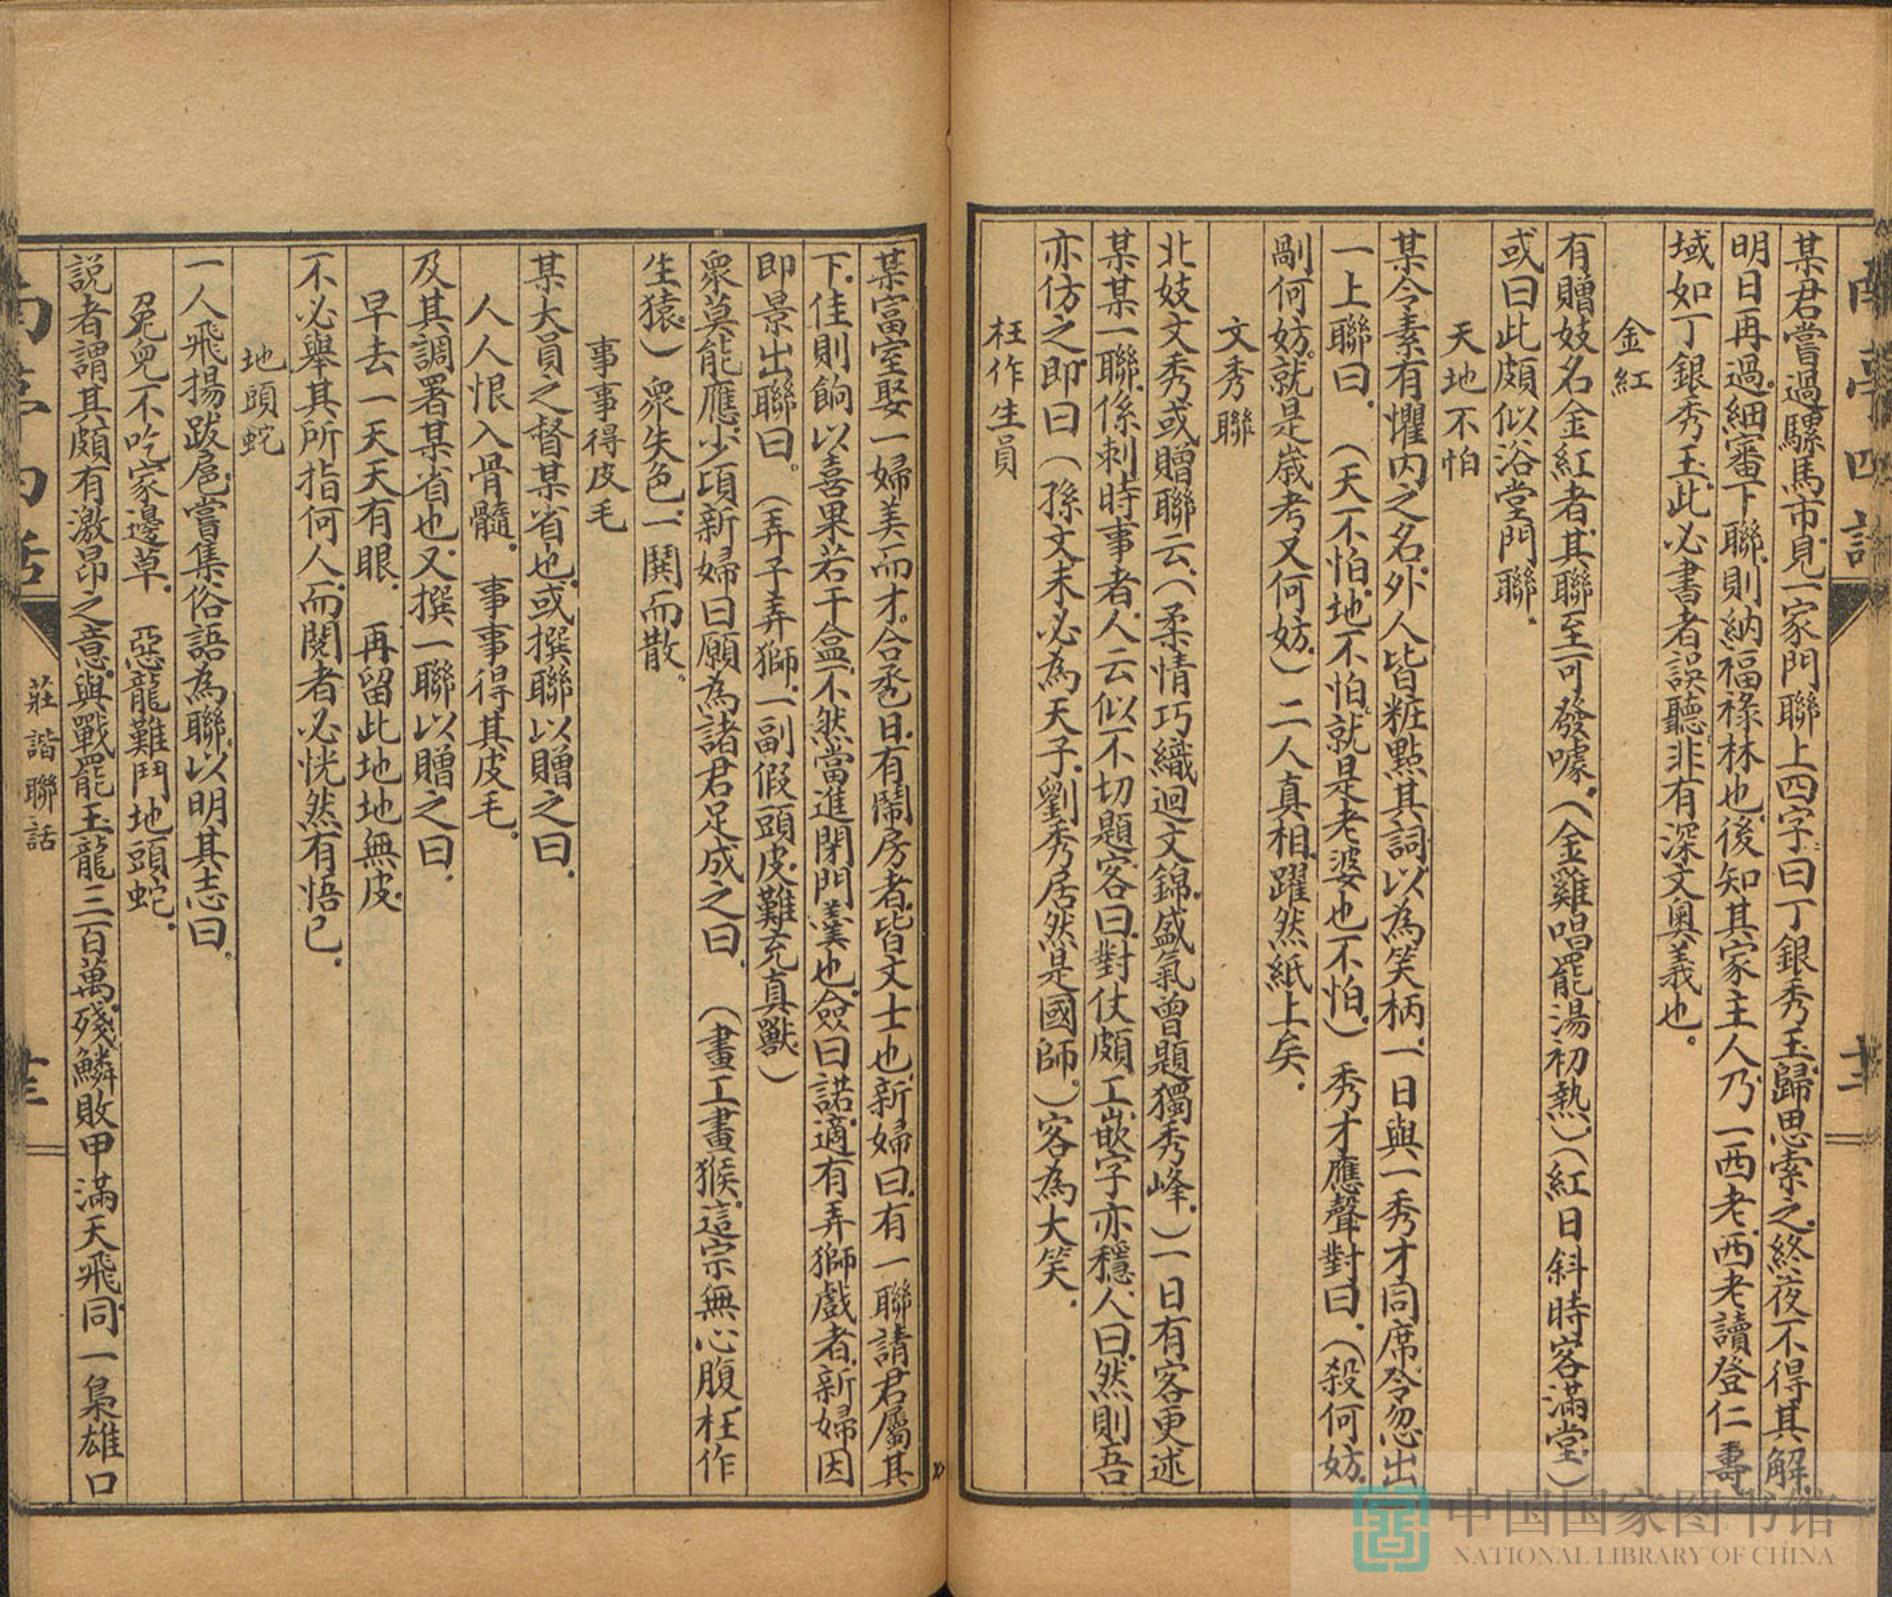 南亭四話
某君嘗過騾馬市見一家門聯上四字曰丁銀秀玉歸思索之終夜不得其解
明日再過細審下聯則納福祿林也後知其家主人乃一西老西老讀登仁壽
域如丁銀秀玉此必書者誤聽非有深文奧義也。
金紅
有贈妓名金紅者其聯至可發噱。(金雞唱罷湯初熱)(紅日斜時客滿堂)
或曰此頗似浴堂門聯。
天地不怕
某令素有懼內之名外人皆粧點其詞以為笑柄一日與一秀才同席令忽出
一上聯曰。(天不怕地不怕就是老婆也不怕)秀才應聲對曰。(殺何妨
剮何妨就是歲考又何妨。)二人真相躍然紙上矣。
文秀聯
北妓文秀或贈聯云(柔情巧織迴文錦盛氣曾題獨秀峰。)一日有客更述
某某一聯係刺時事者人云似不切題客曰對仗頗工嵌字亦穩人曰然則吾
亦仿之即曰(孫文未必為天子劉秀居然是國師。)客為大笑。
枉作生員
某富室娶一婦美而才合卺日有鬧房者皆文士也新婦曰有一聯請君屬其
下佳則餉以喜果若干盒不然當進閉門羹也僉曰諾適有弄獅戲者新婦因
即景出聯曰。(弄子弄獅一副假頭皮難充真獸)
衆莫能應少頃新婦曰願為諸君足成之曰(畫工畫猴這宗無心腹枉作
生猿)衆失色一鬨而散。
事事得皮毛
某大員之督某省也或撰聯以贈之曰。
人人恨入骨髓。事事得其皮毛。
及其調署某省也又撰一聯以贈之曰。
早去一天天有眼。再留此地地無皮
不必舉其所指何人而閱者必恍然有悟已。
地頭蛇
一人飛揚跋扈嘗集俗語為聯以明其志曰。
兔兒不吃家邊草。惡龍難鬥地頭蛇。
說者謂其頗有激昂之意與戰罷玉龍三百萬殘鱗敗甲滿天飛同一梟雄口
莊諧聯話